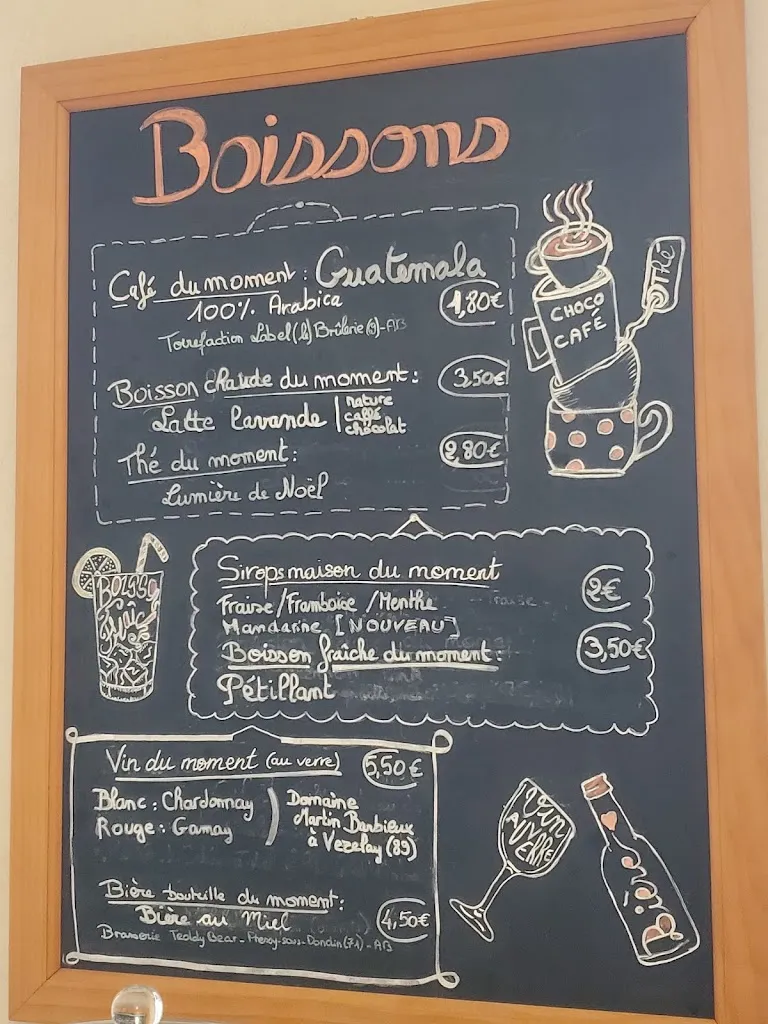 Boissons
Café du moment : Guatemala
100% Arabica
1,80€
Torrefaction Label(le) Brûlerie - AB
Boisson chaude du moment :
3,50€
Latte lavande
nature
caffé
chocolat
Thé du moment :
2,80€
Lumière de Noël
CHOCO
CAFÉ
Thé
Sirops maison du moment
2€
Fraise/Framboise /Menthe
Mandarine [NOUVEAU]
Boisson fraîche du moment :
3,50€
Pétillant
Vin du moment (au verre)
5,50€
Blanc : Chardonnay
Rouge : Gamay
Domaine
Martin Barbieux
à Vezelay (89)
Bière bouteille du moment :
Bière au Miel
4,50€
Brasserie Teddy Bear - sous-Dondin (71) - AB
Vin
AU
VERRE
Bière